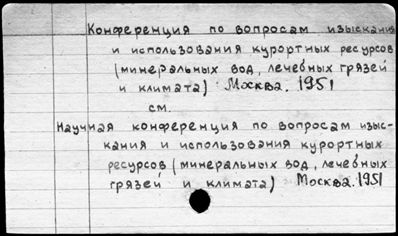 Конференция по вопросам изыскания
и использования курортных ресурсов
(минеральных вод, лечебных грязей
и климата) Москва. 1951
см.
Научная конференция по вопросам изыс-
кания и использования курортных
ресурсов (минеральных вод, лечебных
грязей и климата) Москва. 1951